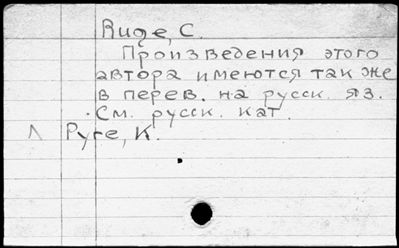 Ruge, C.
Произведения этого
автора имеются так же
в перев. на русск. яз.
См. русск. кат.
Руге, К.